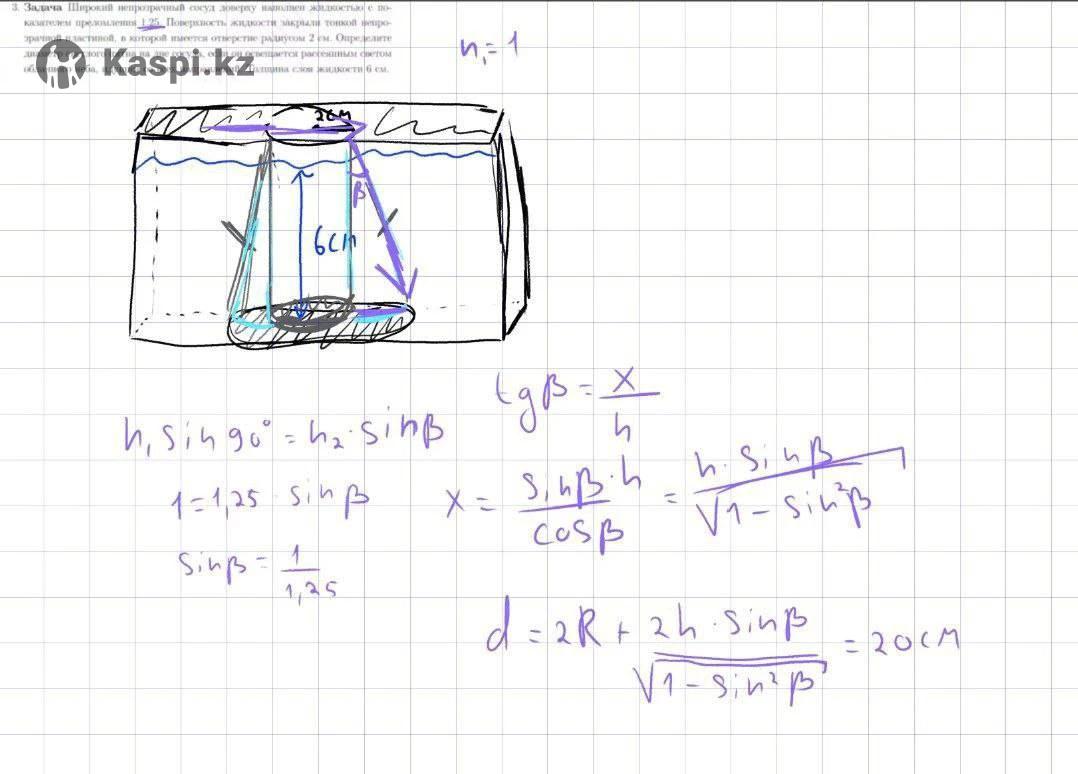 3. Задача Широкий непрозрачный сосуд доверху наполнен жидкостью с по-
казателем преломления 1.25. Поверхность жидкости закрыли тонкой непро-
зрачной пластиной, в которой имеется отверстие радиусом 2 см. Определите
диаметр светлого пятна на дне сосуда, если он освещается рассеянным светом
облачного неба, Толщина слоя жидкости 6 см.
Kaspi.kz
n₁=1
2см
β
6см
tgβ = x/h
n₁ sin 90° = n₂ · sinβ
1 = 1,25 · sinβ
x = sinβ·h/cosβ = h·sinβ/√1 − sin²β
sinβ = 1/1,25
d = 2R + 2h·sinβ/√1 − sin²β = 20см